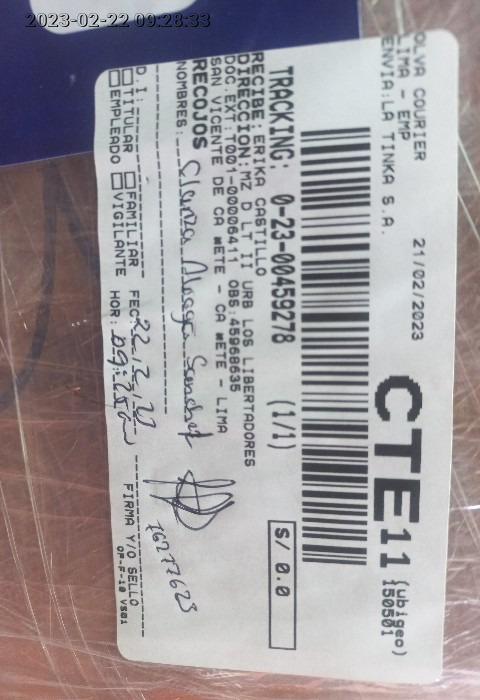 2023-02-22 09:28:33
OLVA COURIER 21/02/2023
LIMA - EMP
ENVIA:LA TINKA S.A.
CTE11 (ubigeo)
150501
TRACKING: 0-23-00459278 (1/1)
S/ 0.0
RECIBE:ERIKA CASTILLO
DIRECCION:MZ D LT II URB LOS LIBERTADORES
DOC.EXT:T001-00006411 OBS:45968635
SAN VICENTE DE CA#ETE - CA#ETE - LIMA
RECOJOS
NOMBRES: Sanchez
76277623
D.I:
TITULAR FAMILIAR FEC: 22/2/23
EMPLEADO VIGILANTE HOR: 09:25
FIRMA Y/O SELLO
OP-F-10 VS01